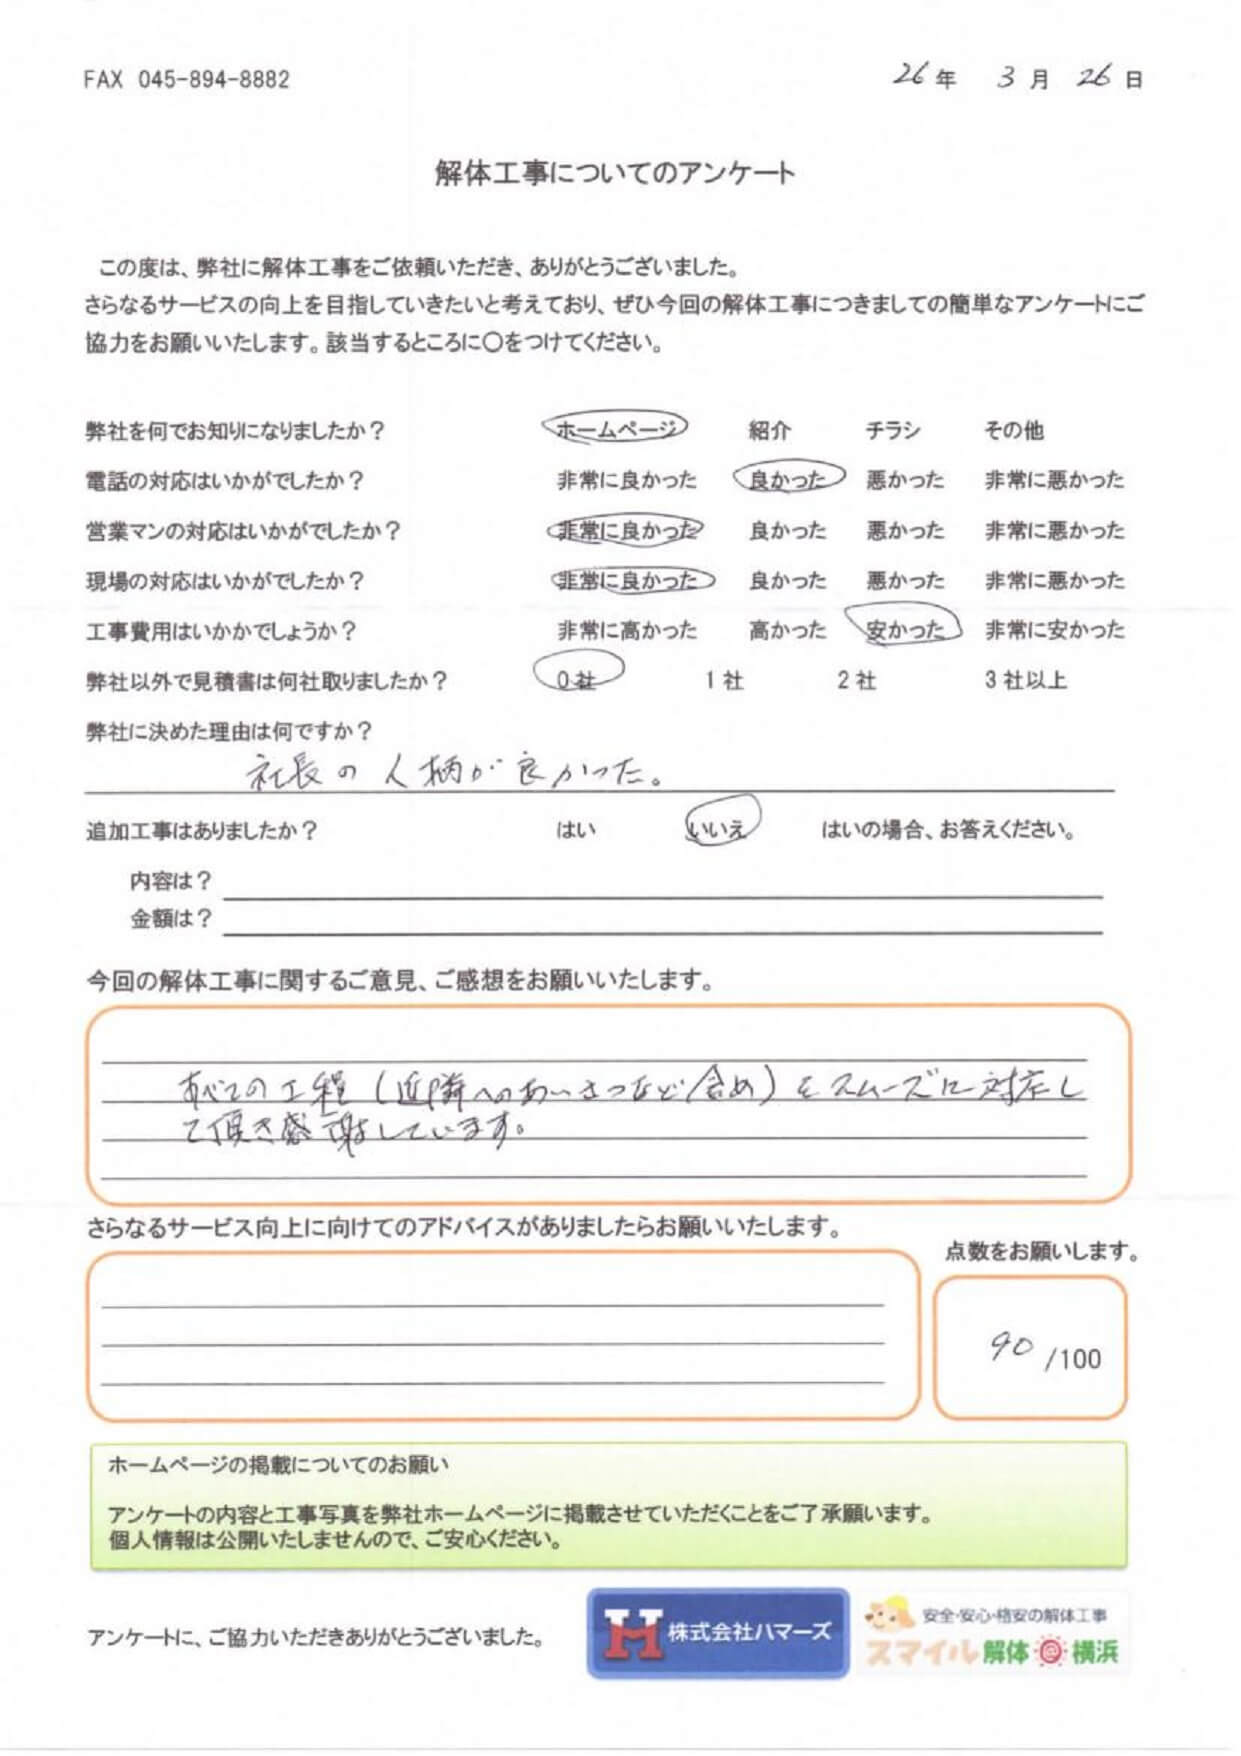 FAX 045-894-8882
26年 3月 26日
解体工事についてのアンケート
この度は、弊社に解体工事をご依頼いただき、ありがとうございました。
さらなるサービスの向上を目指していきたいと考えており、ぜひ今回の解体工事につきましての簡単なアンケートにご
協力をお願いいたします。該当するところに〇をつけてください。
弊社を何でお知りになりましたか? ホームページ 紹介 チラシ その他
電話の対応はいかがでしたか? 非常に良かった 良かった 悪かった 非常に悪かった
営業マンの対応はいかがでしたか? 非常に良かった 良かった 悪かった 非常に悪かった
現場の対応はいかがでしたか? 非常に良かった 良かった 悪かった 非常に悪かった
工事費用はいかかでしょうか? 非常に高かった 高かった 安かった 非常に安かった
弊社以外で見積書は何社取りましたか? 0社 1社 2社 3社以上
弊社に決めた理由は何ですか?
社長の人柄が良かった。
追加工事はありましたか? はい いいえ はいの場合、お答えください。
内容は?
金額は?
今回の解体工事に関するご意見、ご感想をお願いいたします。
すべての工程(近隣へのあいさつなど含め)をスムーズに対応し
て頂き感謝しています。
さらなるサービス向上に向けてのアドバイスがありましたらお願いいたします。
点数をお願いします。
90/100
ホームページの掲載についてのお願い
アンケートの内容と工事写真を弊社ホームページに掲載させていただくことをご了承願います。
個人情報は公開いたしませんので、ご安心ください。
アンケートに、ご協力いただきありがとうございました。
H 株式会社ハマーズ
安全・安心・格安の解体工事
スマイル解体@横浜